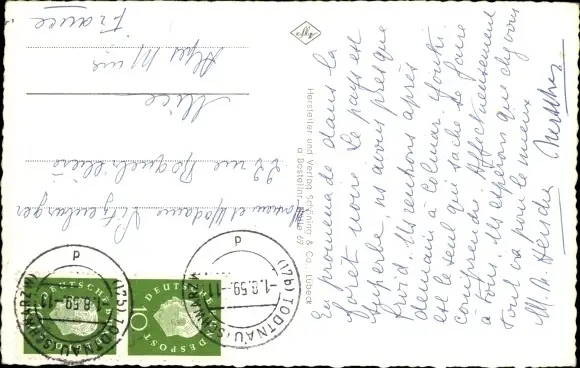 En promenade dans la
forêt noire. Le pays est
superbe, ns avons presque
froid. Ns rentrons après
demain à Colmar. Youki
est le seul qui sache se faire
comprendre. Affectueusement
à tous. Ns espérons que chez vous
tout va pour le mieux
M. A.
Monsieur et Madame
22 rue
Nice
Alpes Mmes
France
Hersteller und Vertrag Schöning & Co., Lübeck
Agfa
(17b) TODTNAU (SCHWARZW)
-1.8.59.-11
d
(17b) TODTNAU (SCHWARZW)
-1.8.59.-11
d
DEUTSCHE BUNDESPOST
10
DEUTSCHE